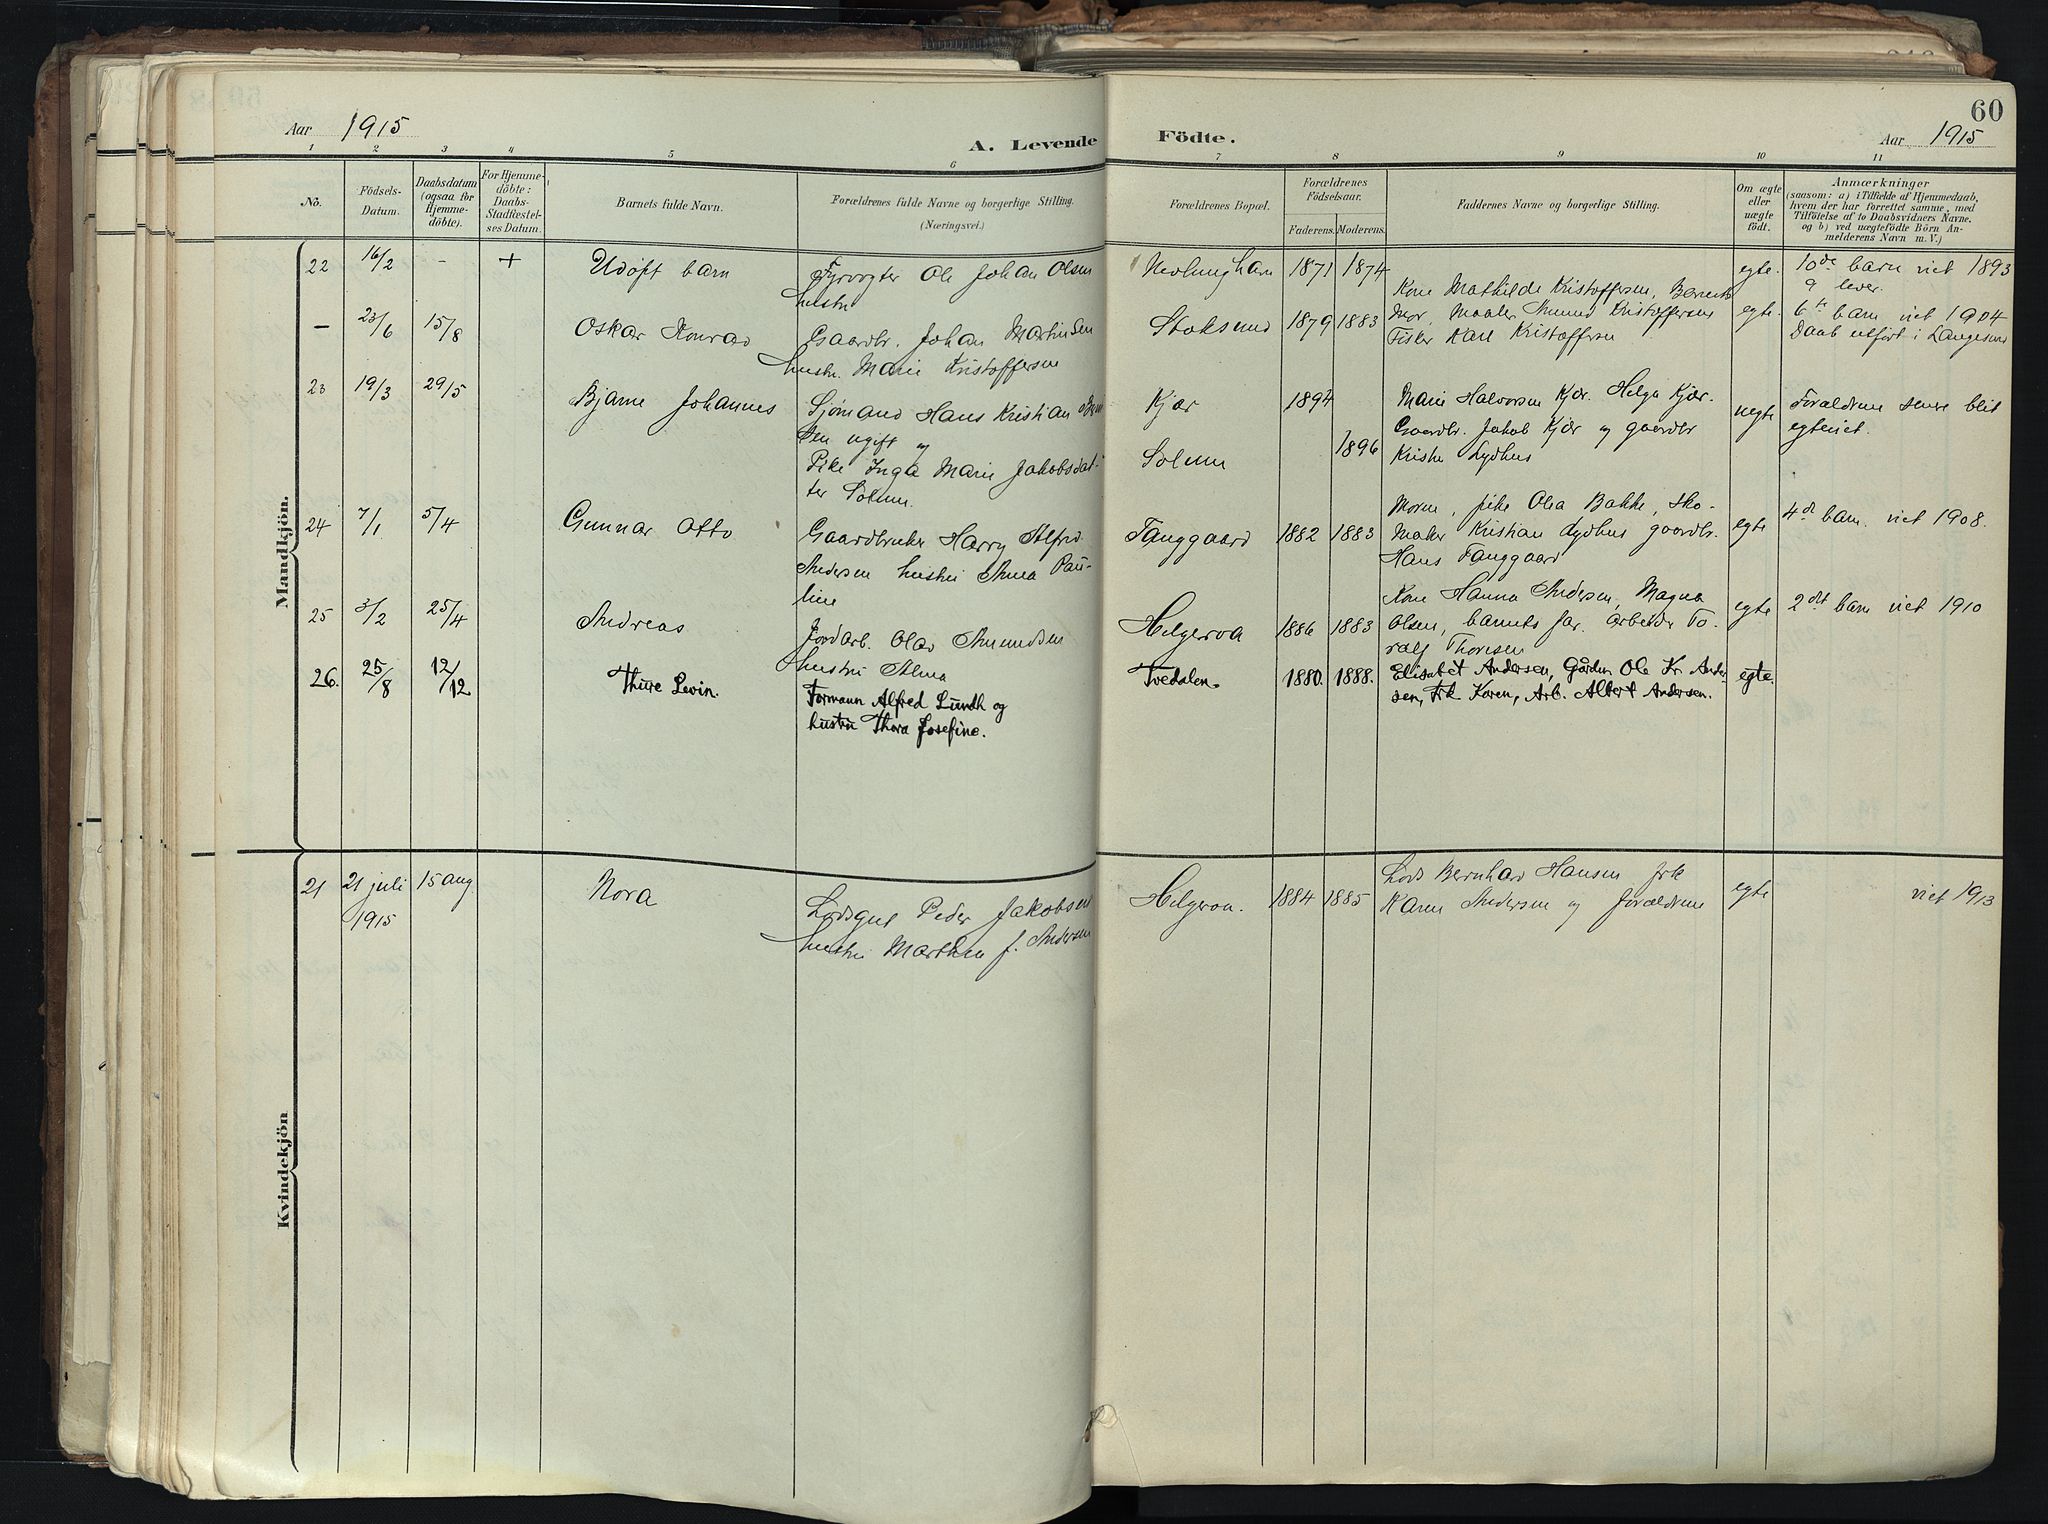 60
Aar 1915
A. Levende Födte.
Aar 1915
1 2 3 4 5 6 7 8 9 10 11
No.
Födsels-
Datum.
Daabsdatum
(ogsaa for
Hjemme-
döbte).
For Hjemme-
döbte:
Daabs-
Stadfæstel-
ses Datum.
Barnets fulde Navn.
Forældrenes fulde Navne og borgerlige Stilling.
(Næringsvei.)
Forældrenes Bopæl.
Forældrenes
Födselsaar.
Faderens. Moderens.
Faddernes Navne og borgerlige Stilling.
Om ægte
eller
uægte
födt.
Anmærkninger
(saasom: a) i Tilfælde af Hjemmedaab,
hvem der har forrettet samme, med
Tilföielse af to Daabsvidners Navne,
og b) ved uægtefödte Börn An-
melderens Navn m. V.)
Mandkjön.
22 16/2 - + Udøpt barn
Fyrvogter Ole Johan Olsen
hustru
Nevlunghavn 1871 1874
egte. 10de barn viet 1893
9 lever.
- 23/6 15/8 Oskar Konrad
Gaardbr. Johan Martinsen
hustr. Marie Kristoffersen
Stoksund 1879 1883
Kone Mathilde Kristoffersen, Barnets
Mor, Maaler Amund Kristoffersen
Fisker Karl Kristoffersen
egte. 6te barn viet 1904
Daab utført i Langesund
23 19/3 29/5 Bjarne Johannes
Sjømand Hans Kristian
sen ugift og
Pike Inga Marie Jakobsdat-
ter Solum.
Kjær 1894
Solum 1896
Marie Halvorsen Kjær. Helga Kjær.
Gaardbr. Jakob Kjær og gaardbr
Lydhus
uegte Forældrene senere blit
egteviet.
24 7/1 5/4 Gunnar Otto
Gaardbruker Harry Alfred
Andersen hustru Anna Pau-
line
Fanggaard 1882 1883
Moren, pike Olea Bakke, Sko-
maker Kristian Lydhus gaardbr.
Hans Fanggaard
egte 4de barn. viet 1908.
25 3/2 25/4 Andreas
Jordarb. Olav Amundsen
hustru Alma
Helgeroa 1886 1883
Kone Hanna Andersen, Magna
Olsen, barnets far. Arbeider To-
ralf Thoresen
egte 2det barn viet 1910
26. 25/8 12/12 Thure Levin.
Formann Alfred Lundh og
hustru Thora Josefine.
Tvedalen. 1880. 1888.
Elisabet Andersen, Gårdbr. Ole Kr. Ander-
sen, Frk Karen, Arb. Albert Andersen.
egte.
Kvindekjön
21 21 juli 15 aug. Nora
1915
Lodsgut Peder Jakobsen
hustru Marthea f. Andersen
Helgeroa. 1884 1885
Lods Bernhard Hansen frk
Karen Andersen og forældrene
egte viet 1913